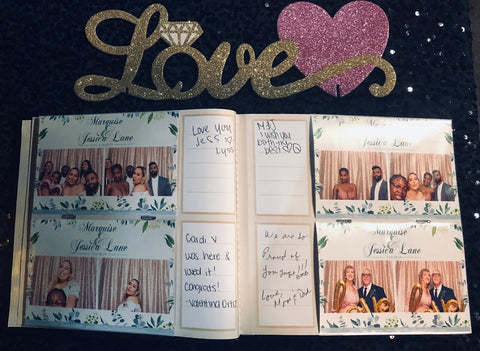 Love
Marquise
&
Jessica Lane
Love You
Jess
Lyss
M&J
I wish you
both the
best
Marquise
&
Jessica Lane
Marquise
&
Jessica Lane
Cardi V
was here &
loved it!
Congrats!
-Valentina Ortiz
We are so
Proud of
you guys!
Love,
Mom & Dad
Marquise
&
Jessica Lane